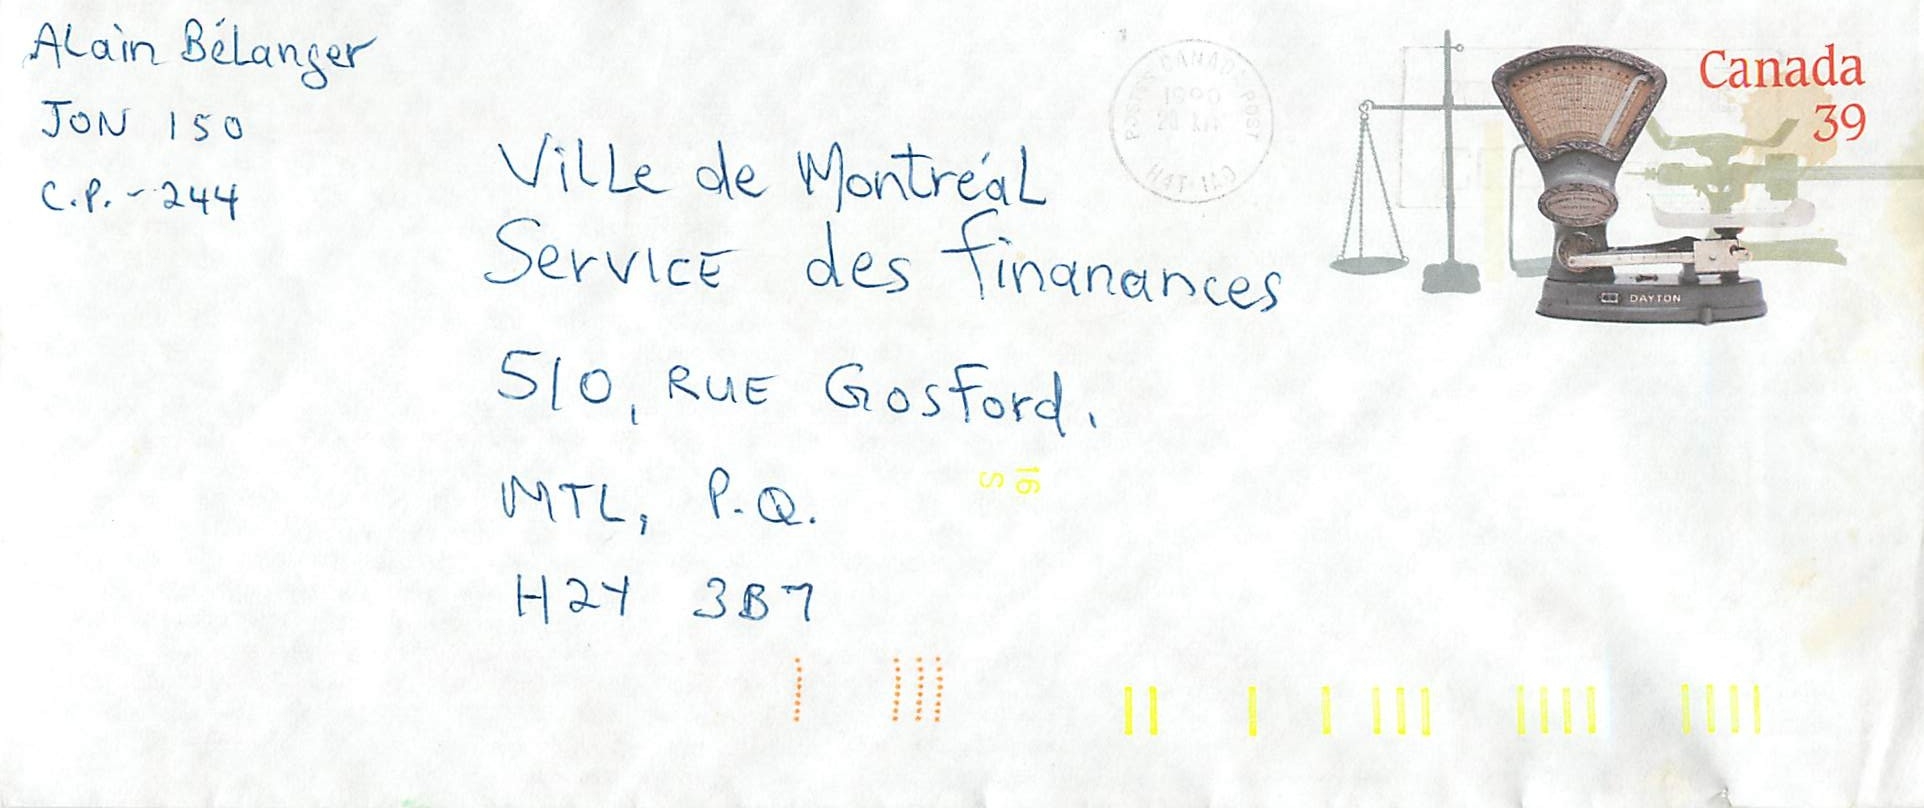 ALain BéLanger
JON 150
C.P. - 244
ViLLe de MontréaL
ServICE des finanances
510, RUE Gosford.
MTL, P.Q.
H2Y 3B7
Canada
39
POSTES CANADA POST
H4T 1A0
DAYTON
16
S